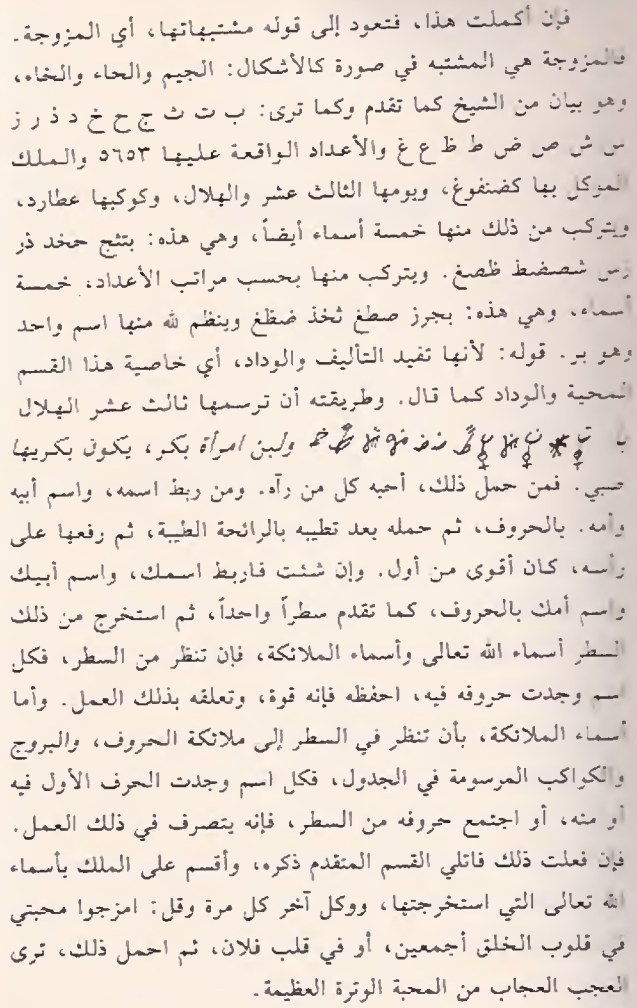 فإن أكملت هذا، فتعود إلى قوله مشتبهاتها، أي المزوجة.
فالمزوجة هي المشتبه في صورة كالأشكال: الجيم والحاء والخاء،
وهو بيان من الشيخ كما تقدم وكما ترى: ب ت ث ج ح خ د ذ ر ز
س ش ص ض ط ظ ع غ والأعداد الواقعة عليها ٥٦٥٣ والملك
الموكل بها كضنفوغ، ويومها الثالث عشر والهلال، وكوكبها عطارد،
ويتركب من ذلك منها خمسة أسماء أيضاً، وهي هذه: بتثج حخد ذر
زس شصضط ظصغ. ويتركب منها بحسب مراتب الأعداد، خمسة
أسماء، وهي هذه: بجرز صطغ ثخذ ضظغ وينظم لله منها اسم واحد
وهو بر. قوله: لأنها تفيد التأليف والوداد، أي خاصية هذا القسم
المحبة والوداد كما قال. وطريقته أن ترسمها ثالث عشر الهلال
ولبن امرأة بكر، يكون بكريها
صبي. فمن حمل ذلك، أحبه كل من رآه. ومن ربط اسمه، واسم أبيه
وأمه. بالحروف، ثم حمله بعد تطيبه بالرائحة الطيبة، ثم رفعها على
رأسه، كان أقوى من أول. وإن شئت فاربط اسمك، واسم أبيك
واسم أمك بالحروف، كما تقدم سطراً واحداً، ثم استخرج من ذلك
السطر أسماء الله تعالى وأسماء الملائكة، فإن تنظر من السطر، فكل
اسم وجدت حروفه فيه، احفظه فإنه قوة، وتعلقه بذلك العمل. وأما
أسماء الملائكة، بأن تنظر في السطر إلى ملائكة الحروف، والبروج
والكواكب المرسومة في الجدول، فكل اسم وجدت الحرف الأول فيه
أو منه، أو اجتمع حروفه من السطر، فإنه يتصرف في ذلك العمل.
فإن فعلت ذلك فاتلي القسم المتقدم ذكره، وأقسم على الملك بأسماء
الله تعالى التي استخرجتها، ووكل آخر كل مرة وقل: امزجوا محبتي
في قلوب الخلق أجمعين، أو في قلب فلان، ثم احمل ذلك، ترى
العجب العجاب من المحبة الوترة العظيمة.